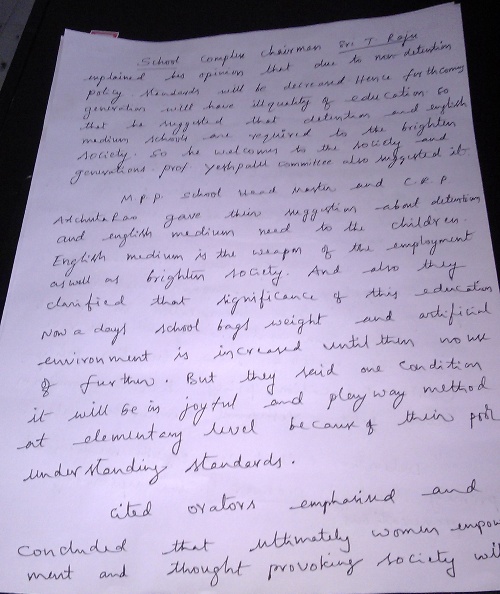 School Complex chairman Sri T. Raju
explained his opinion that due to non detention
policy standards will be decreased Hence forthcoming
generation will have ill quality of education. so
that he suggested that detention and english
medium schools are required to the brighten
society. So he welcomes to the society and
generations. prof. Yeshpall committee also suggested it
M.P.P. School Head Master and C.R.P
Atchuta Rao gave their suggestion about detention
and english medium need to the children.
English medium is the weapon of the employment
as well as brighten society. And also they
clarified that significance of this education
Now a days school bags weight and artificial
environment is increased until then no use
of further. But they said one condition
it will be in joyful and play way method
at elementary level because of their poor
understanding standards.
cited orators emphasised and
concluded that ultimately women empow
ment and thought provoking society wil